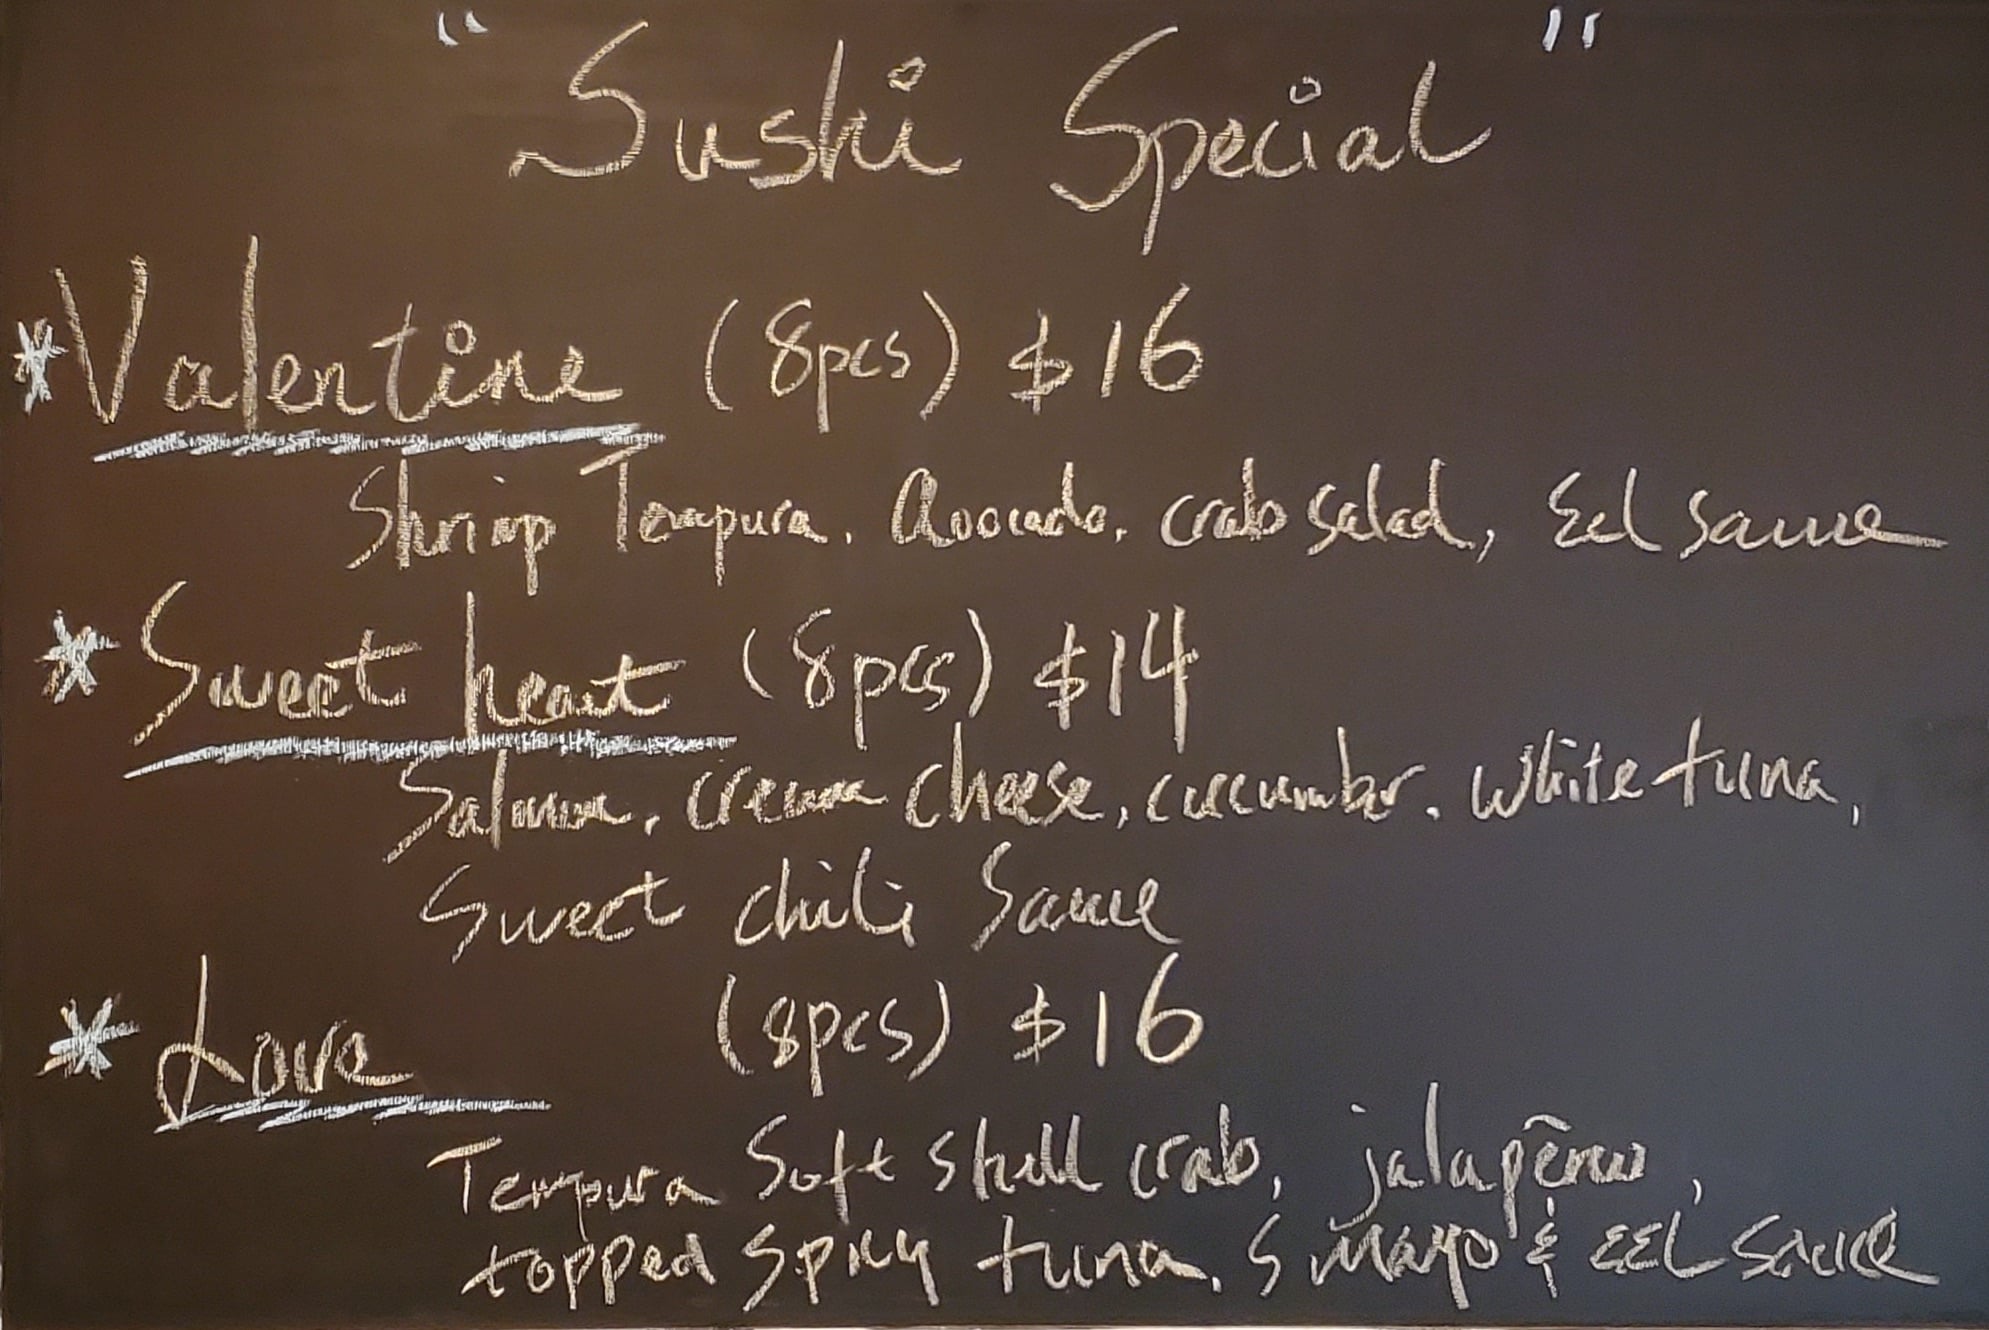 "Sushi Special"
*Valentine (8pcs) $16
Shrimp Tempura. Avocado. crab salad, Eel sauce
*Sweet heart (8pcs) $14
Salmon. cream cheese, cucumber. White tuna,
Sweet chili Sauce
*Love (8pcs) $16
Tempura Soft shell crab, jalapẽno,
topped spicy tuna. S mayo & EEL sauce